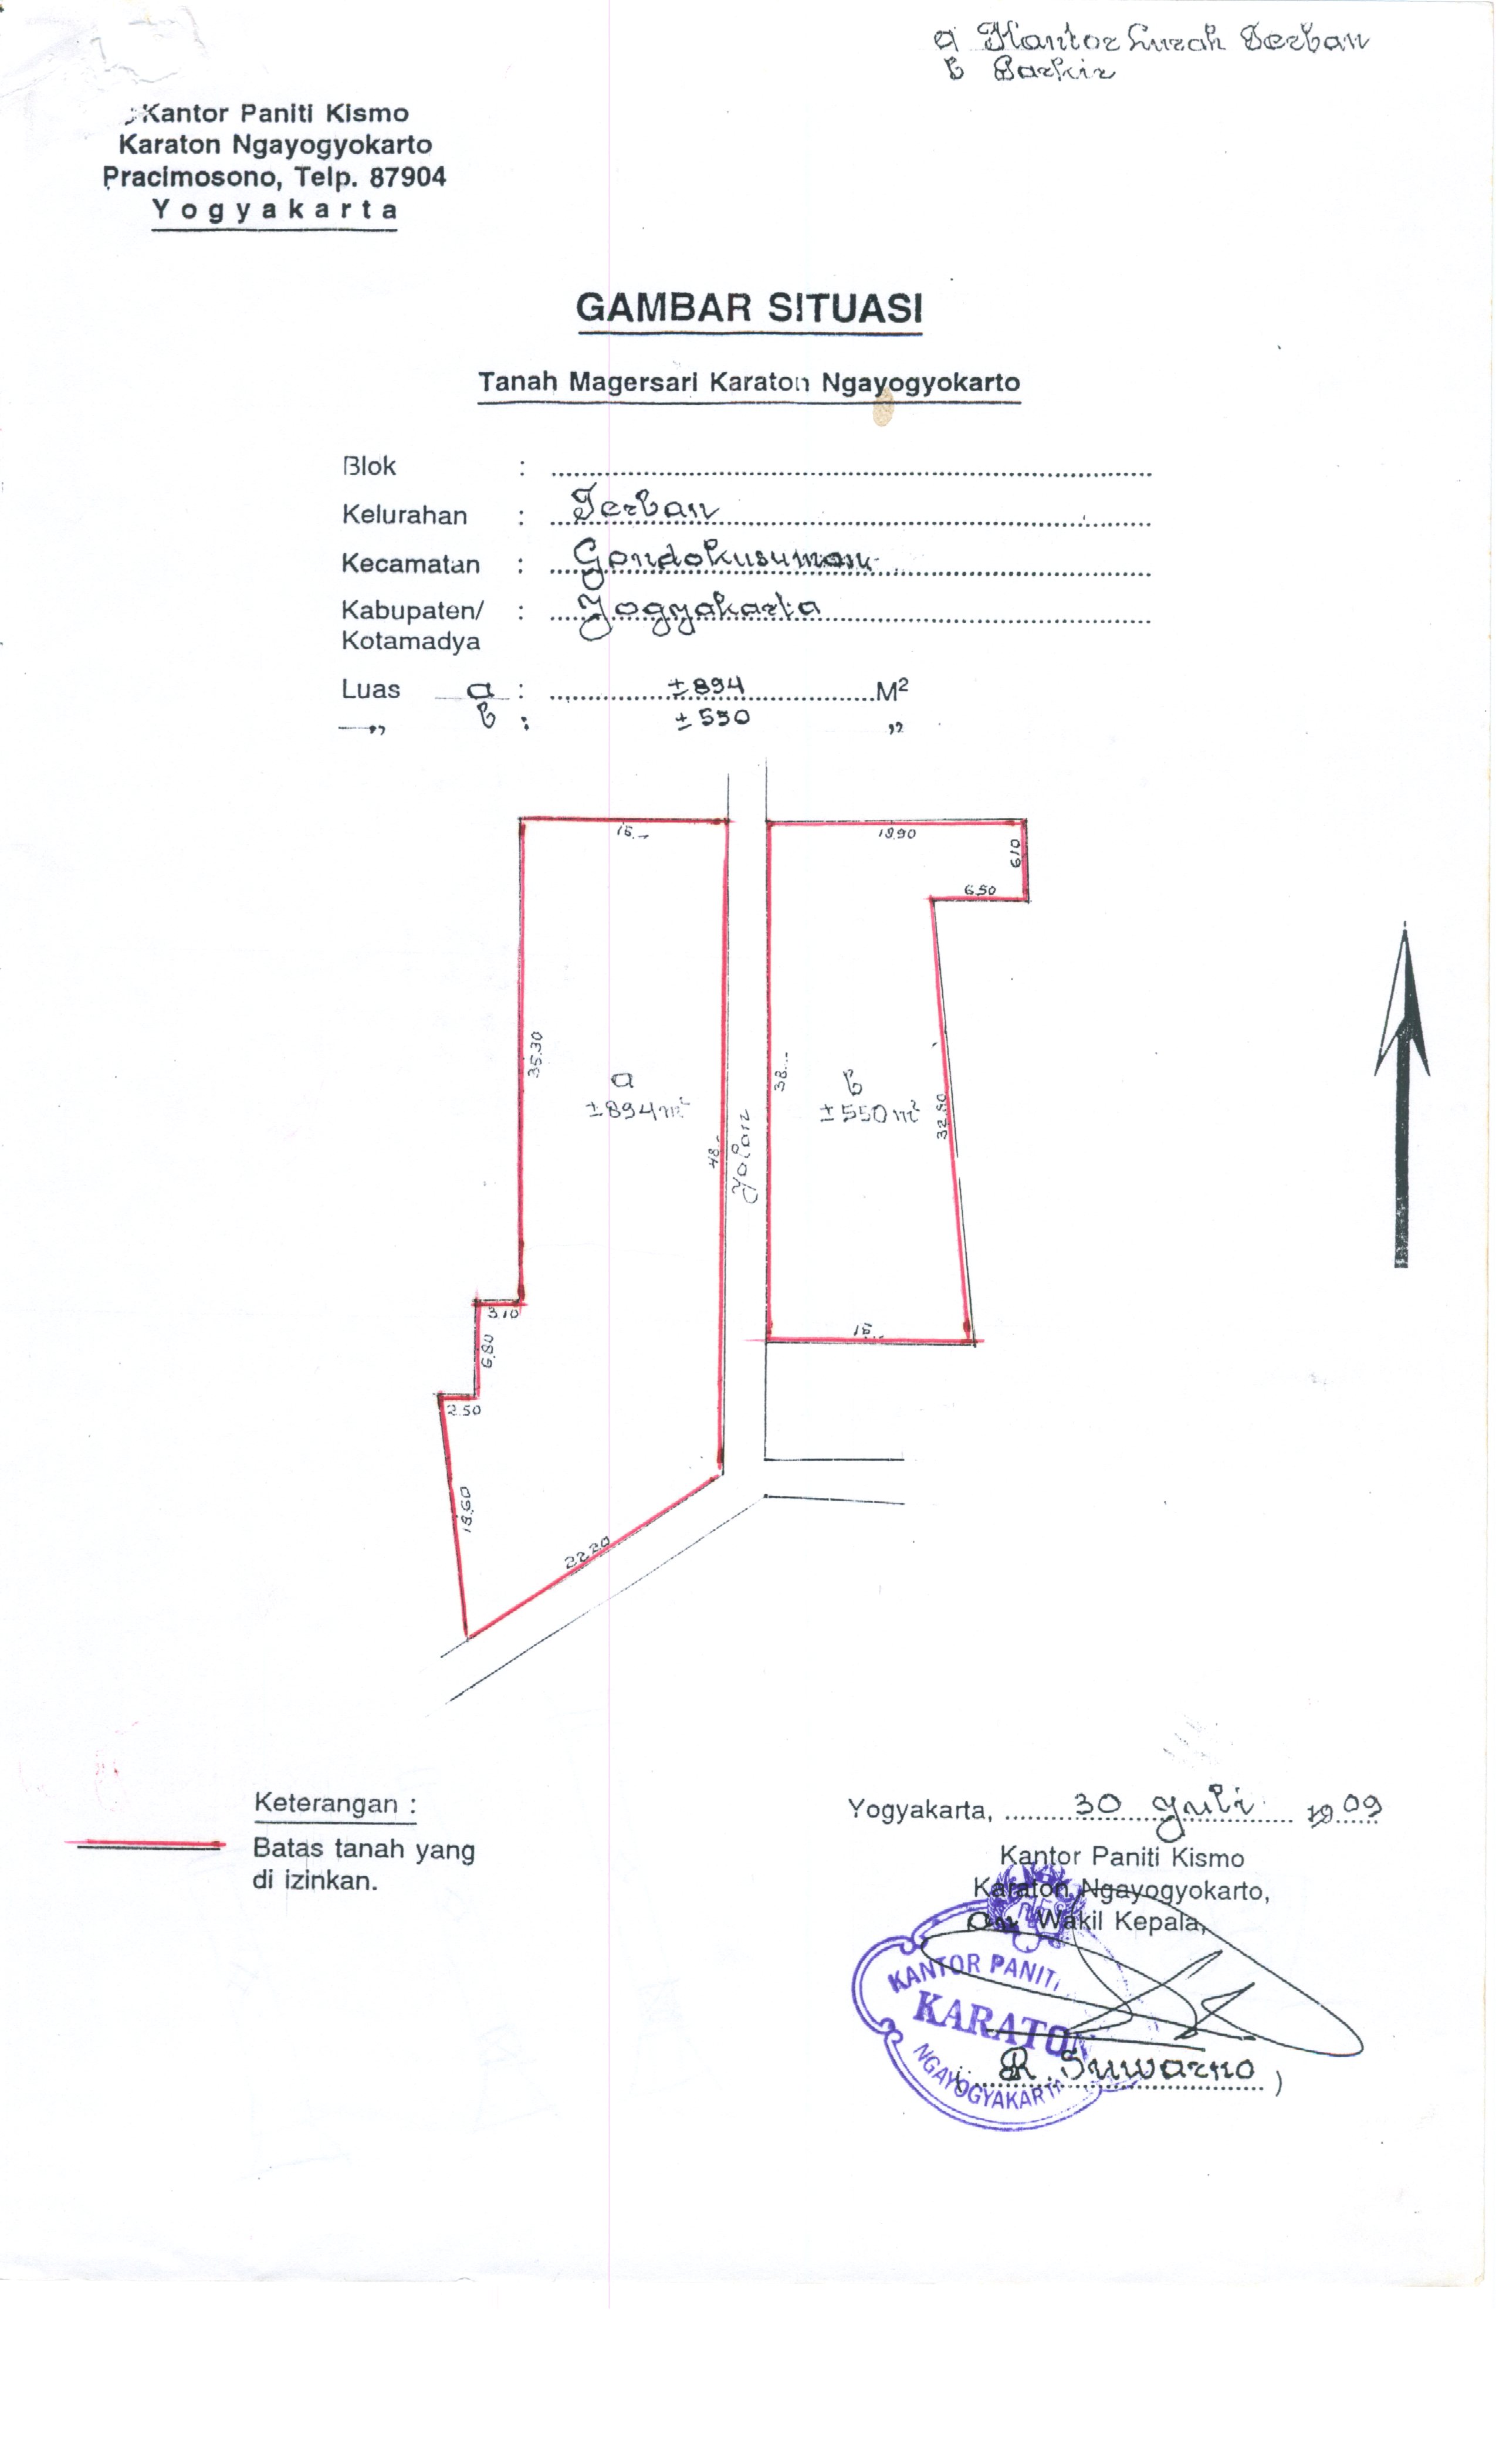 a Kantor Lurah Terban
b Parkir
Kantor Paniti Kismo
Karaton Ngayogyokarto
Pracimosono, Telp. 87904
Yogyakarta
GAMBAR SITUASI
Tanah Magersari Karaton Ngayogyokarto
Blok :
Kelurahan : Terban
Kecamatan : Gondokusuman
Kabupaten/ : Yogyakarta
Kotamadya
Luas a : ±894 M²
—„ b : ±550 „
15.-
18.90
6.10
6.50
35.30
a
±894 m²
48.-
Jalan
38.-
b
±550 m²
32.80
3.10
6.80
2.50
15.-
18.60
22.20
Keterangan :
Batas tanah yang
di izinkan.
Yogyakarta, 30 Juli 09
Kantor Paniti Kismo
Karaton Ngayogyokarto,
Wakil Kepala,
KANTOR PANITI
KARATON
NGAYOGYAKARTA
( R. Suwarno )